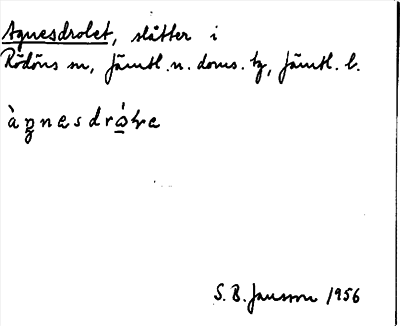 Agnesdrolet, slåtter i
Rödöns sn, Jämtl. n. doms. tg, Jämtl. l.
S. B. Jansson 1956